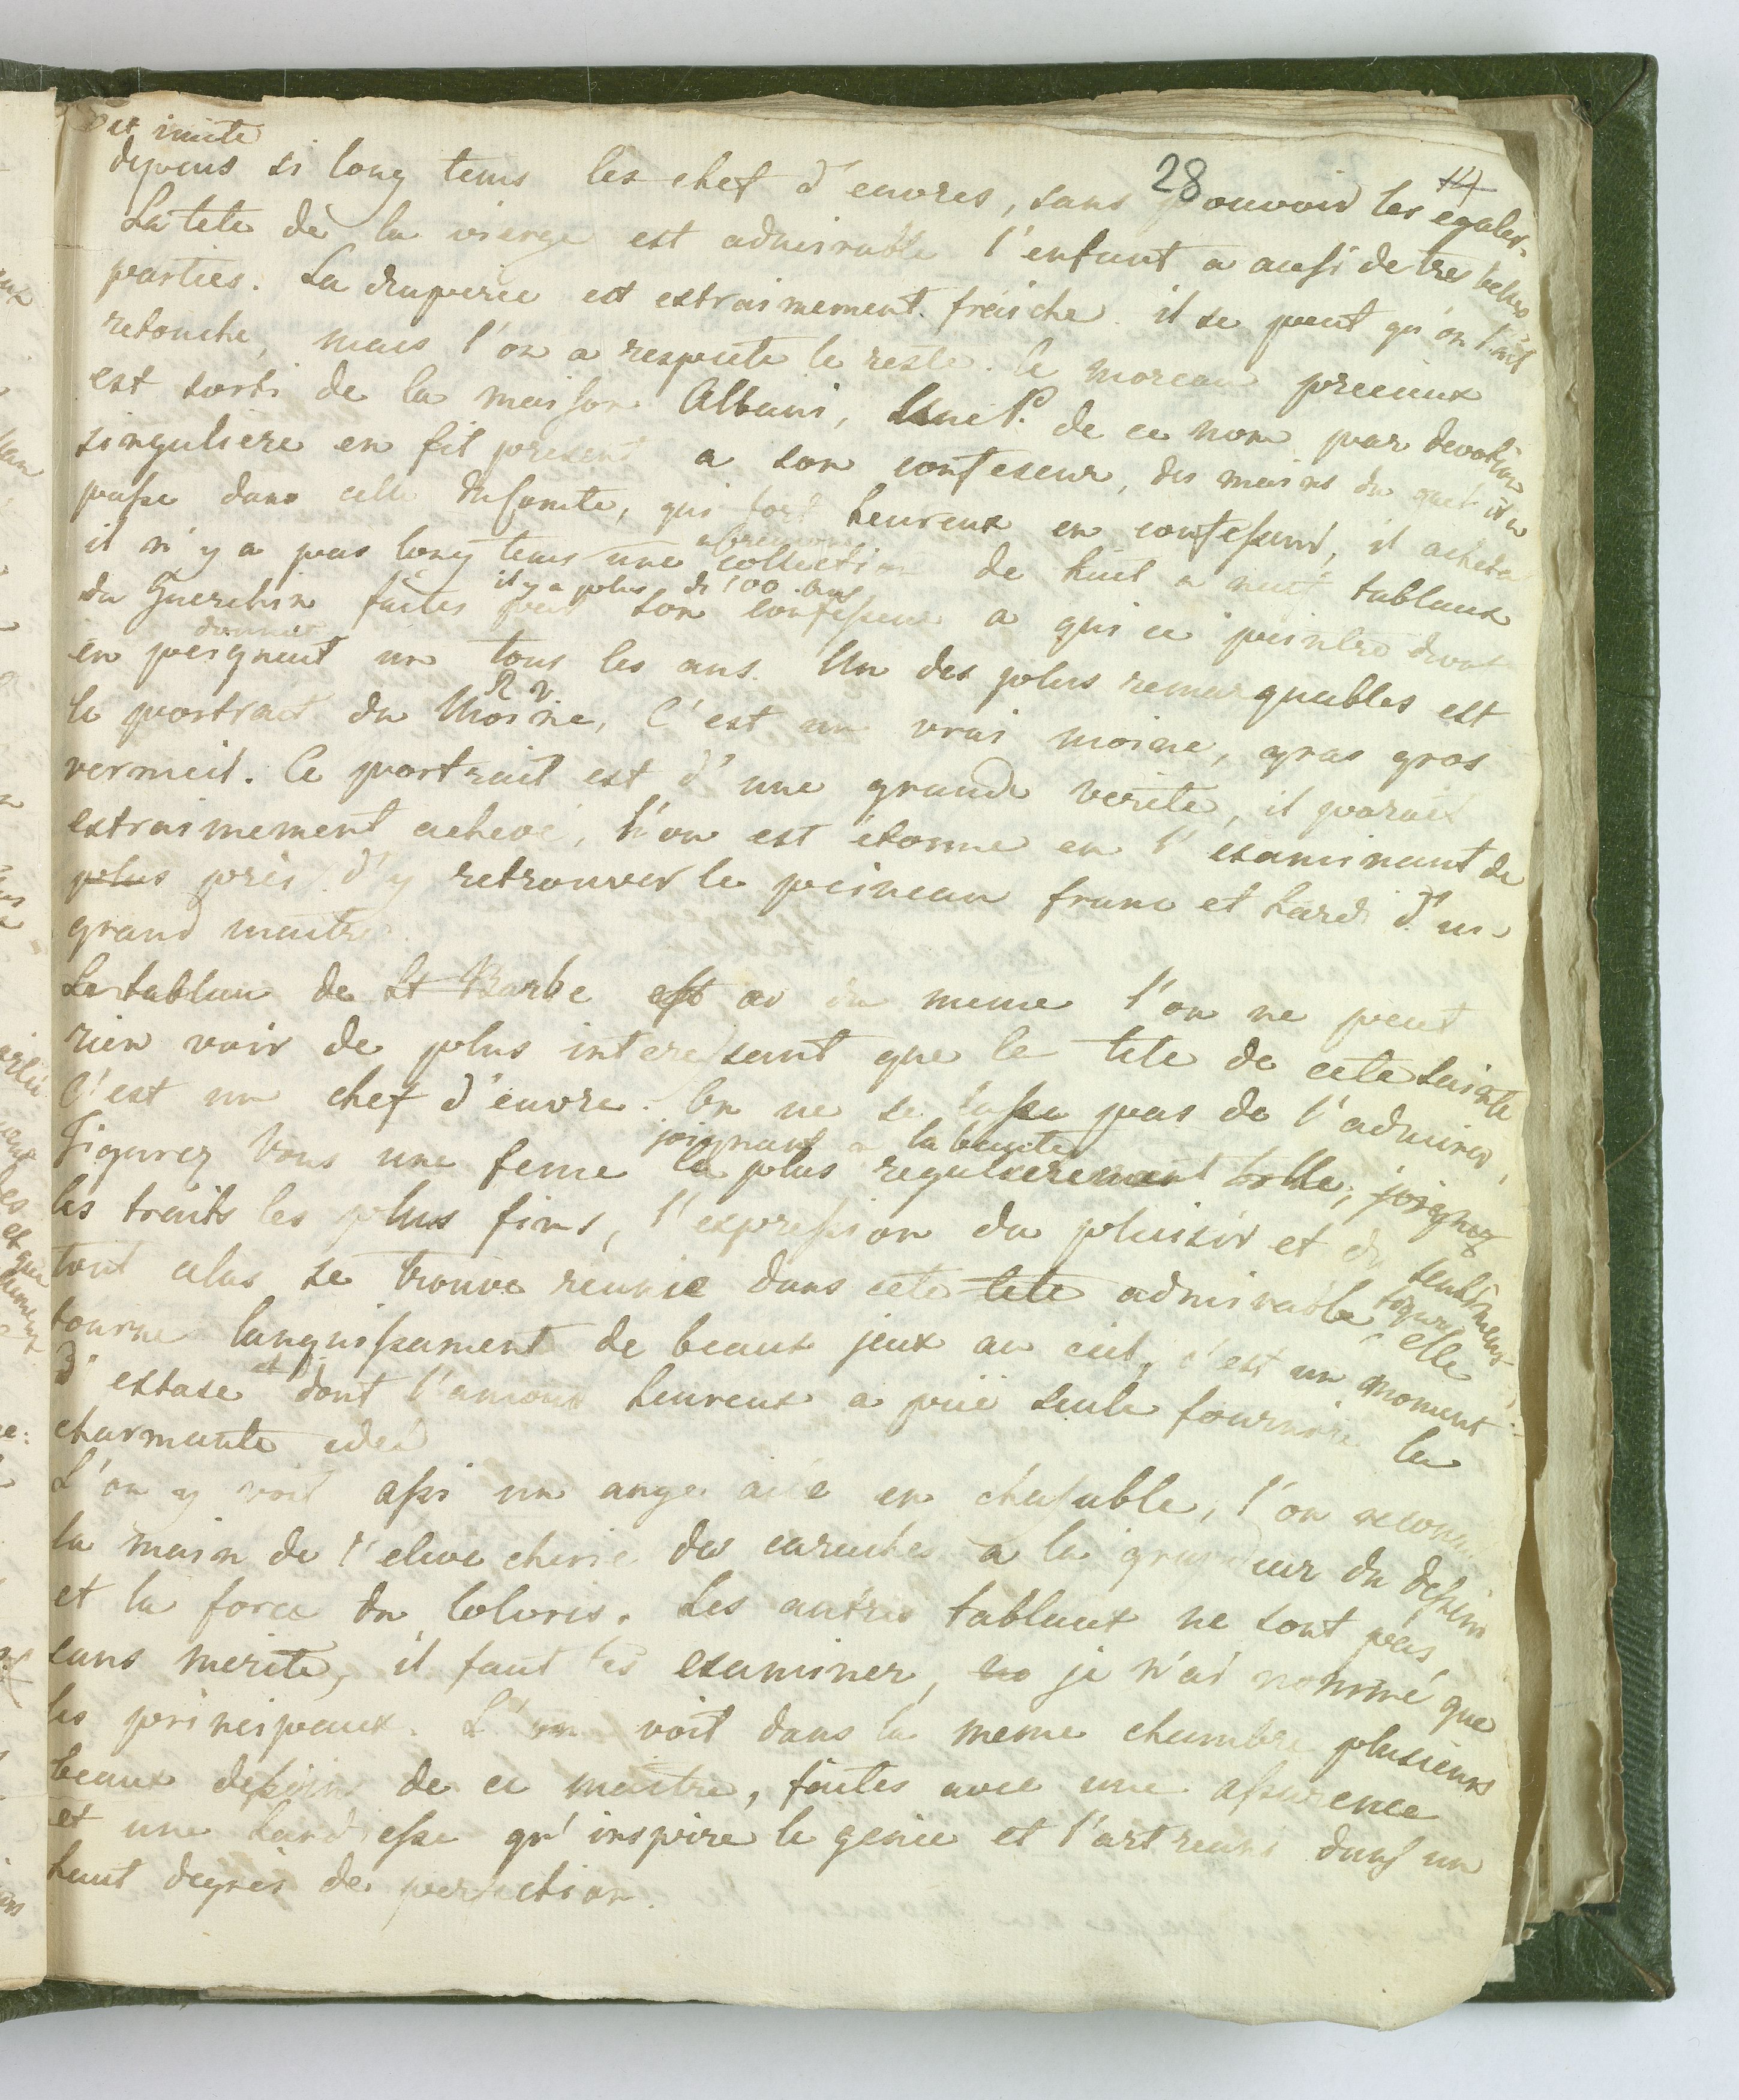 et imite
28 14
depeus si long tems les chef d'euvres, sans pouvoir les egaler.
La tete de la vierge est admirable l'enfant a aussi de tres belles
parties. La draperie est extraimement fraiche. il se peut qu'on l'ait
retouche, mais l'on a respecte le reste. Ce morceau precieux
est sorti de la maison Albani, de ce nom par devotion
singuliere en fit present a son confeseur, des mains du quel il a
passe dans celle du Comte, qui fort heureux en confesseur, il acheta
il n'y a pas long tems une collection de huit a neuf tableaux
il y a plus de 100 ans
du Guerchin faites par son confesseur a qui ce peintre devoit
donner
en peignent un tous les ans. Un des plus remarquables est
le portrait du Moine, C'est un vrai moine, gras gros
vermeil. Ce portrait est d'une grande verite, il parait
extraimement acheve, l'on est étonne en l'examinant de
plus près d'y retrouver le peinceau franc et hardi d'un
grand maitre.
Le tableau de St Barbe est du meme l'on ne peut
rien voir de plus interessant que le tete de cete Sainte
C'est un chef d'euvre. On ne se lasse pas de l'admirer,
joignant a la beaute
Figurez Vous une feme la plus regulierement belle, joignez
les traits les plus fins, l'expression du plaisir et du sentiment
tout celas se trouve reunie dans cete tete admirable, elle
figure
tourne languissament de beaux jeux au ciel, c'est un moment
d'extase et dont l'amour heureux a puë seule fournire la
charmante ideé
L'on y voit assi un ange aile en chasuble, l'on reconn
la main de l'eleve cherie des caraches a la grandeur du dessein
et la force du Coloris. Les autres tableaux ne sont pas
sans merite, il faut les examiner, je n'ai nommé que
les principaux. L'on voit dans la meme chambre plusieurs
beaux dessins de ce maitre, faites avec une assurence
et une hardiesse qu'inspire le genie et l'art reuni dans un
haut degrés de perfection.